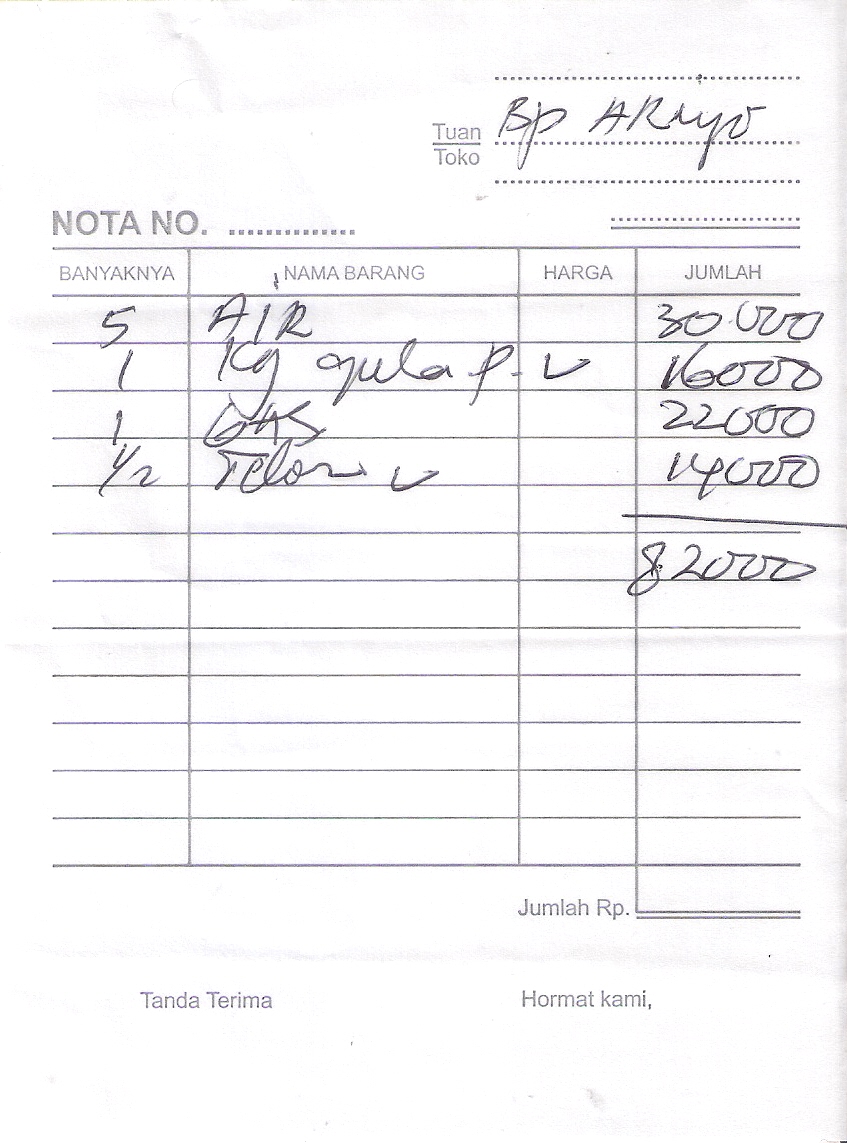 Tuan
Toko
Bp ARiyo
NOTA NO. ..............
BANYAKNYA NAMA BARANG HARGA JUMLAH
5 AIR 30.000
1 Kg gula p. 16000
1 GAS 22000
1/2 Telor 14000
82000
Jumlah Rp.
Tanda Terima Hormat kami,